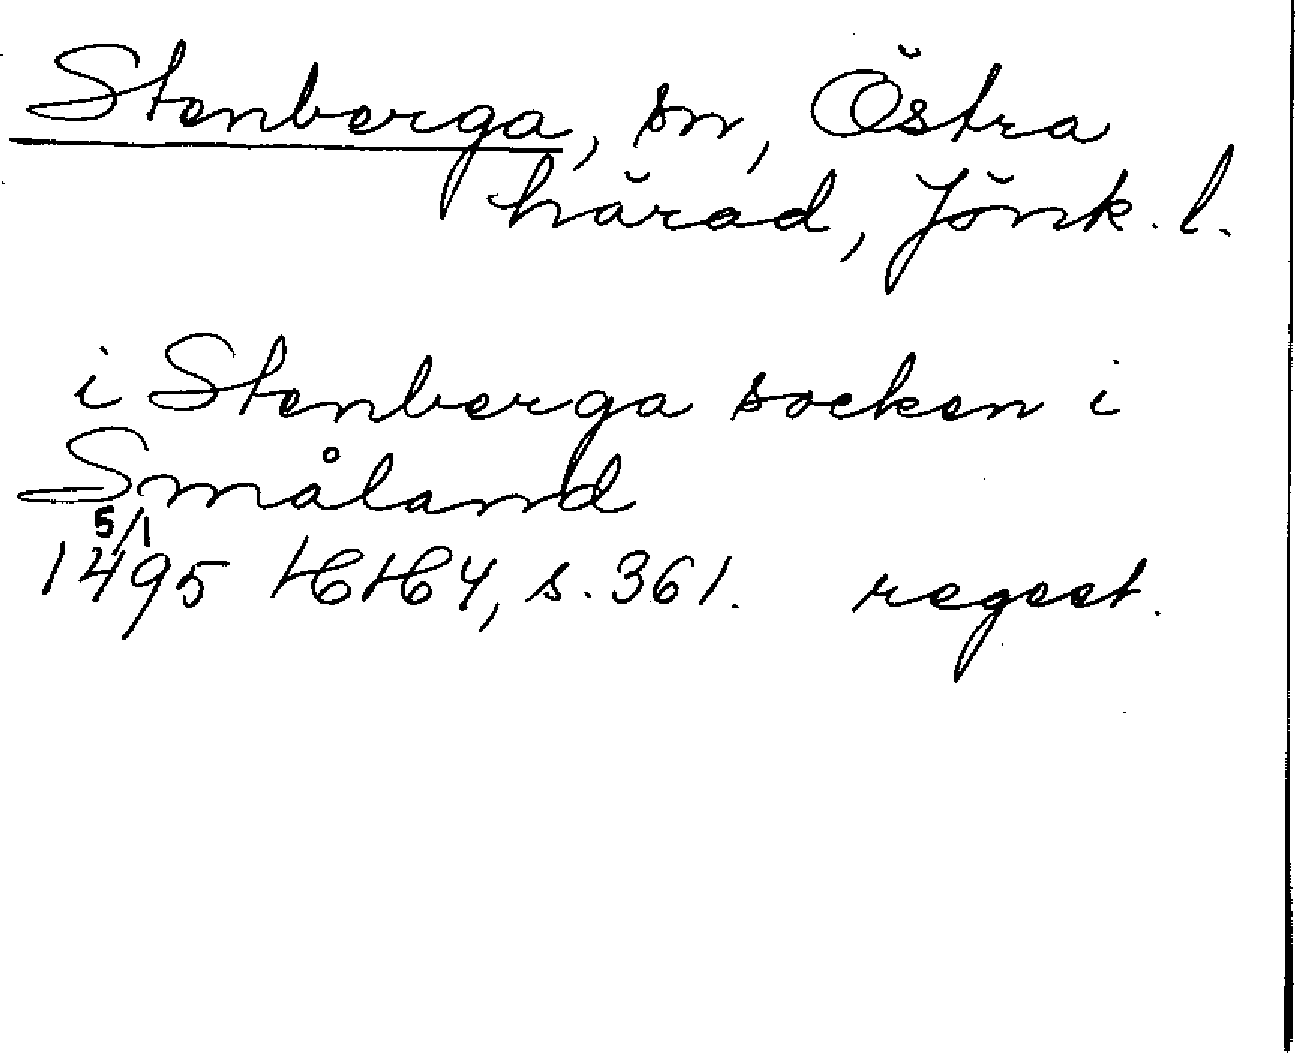 Stenberga, sn, Östra
härad, Jönk. l.
i Stenberga socken i
Småland
5/1
1495 HH 4, s. 361. regest.